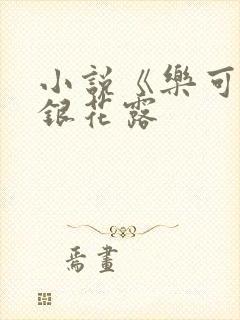 小説《樂可
銀花露
焉畫